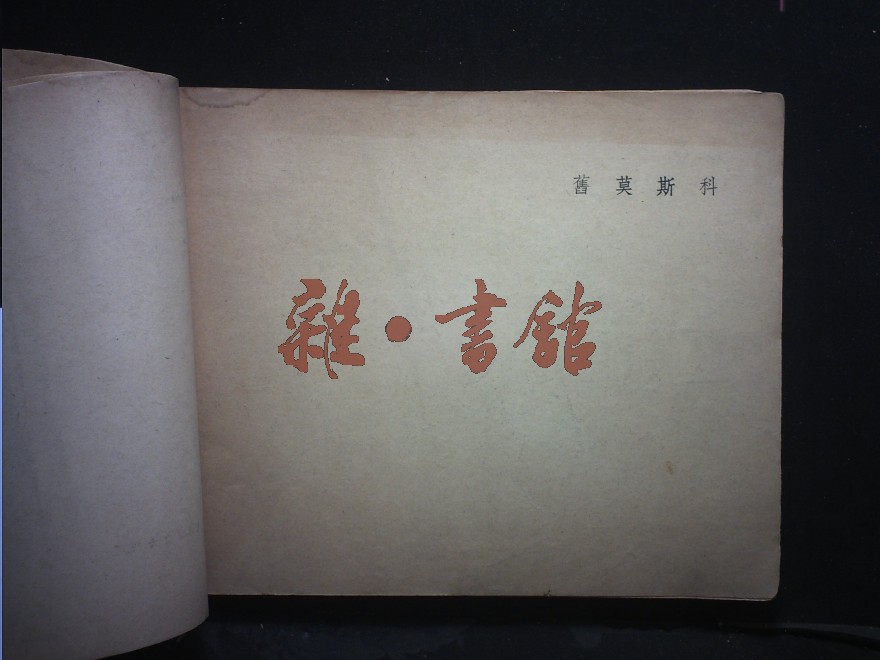 舊莫斯科
雜·書舘